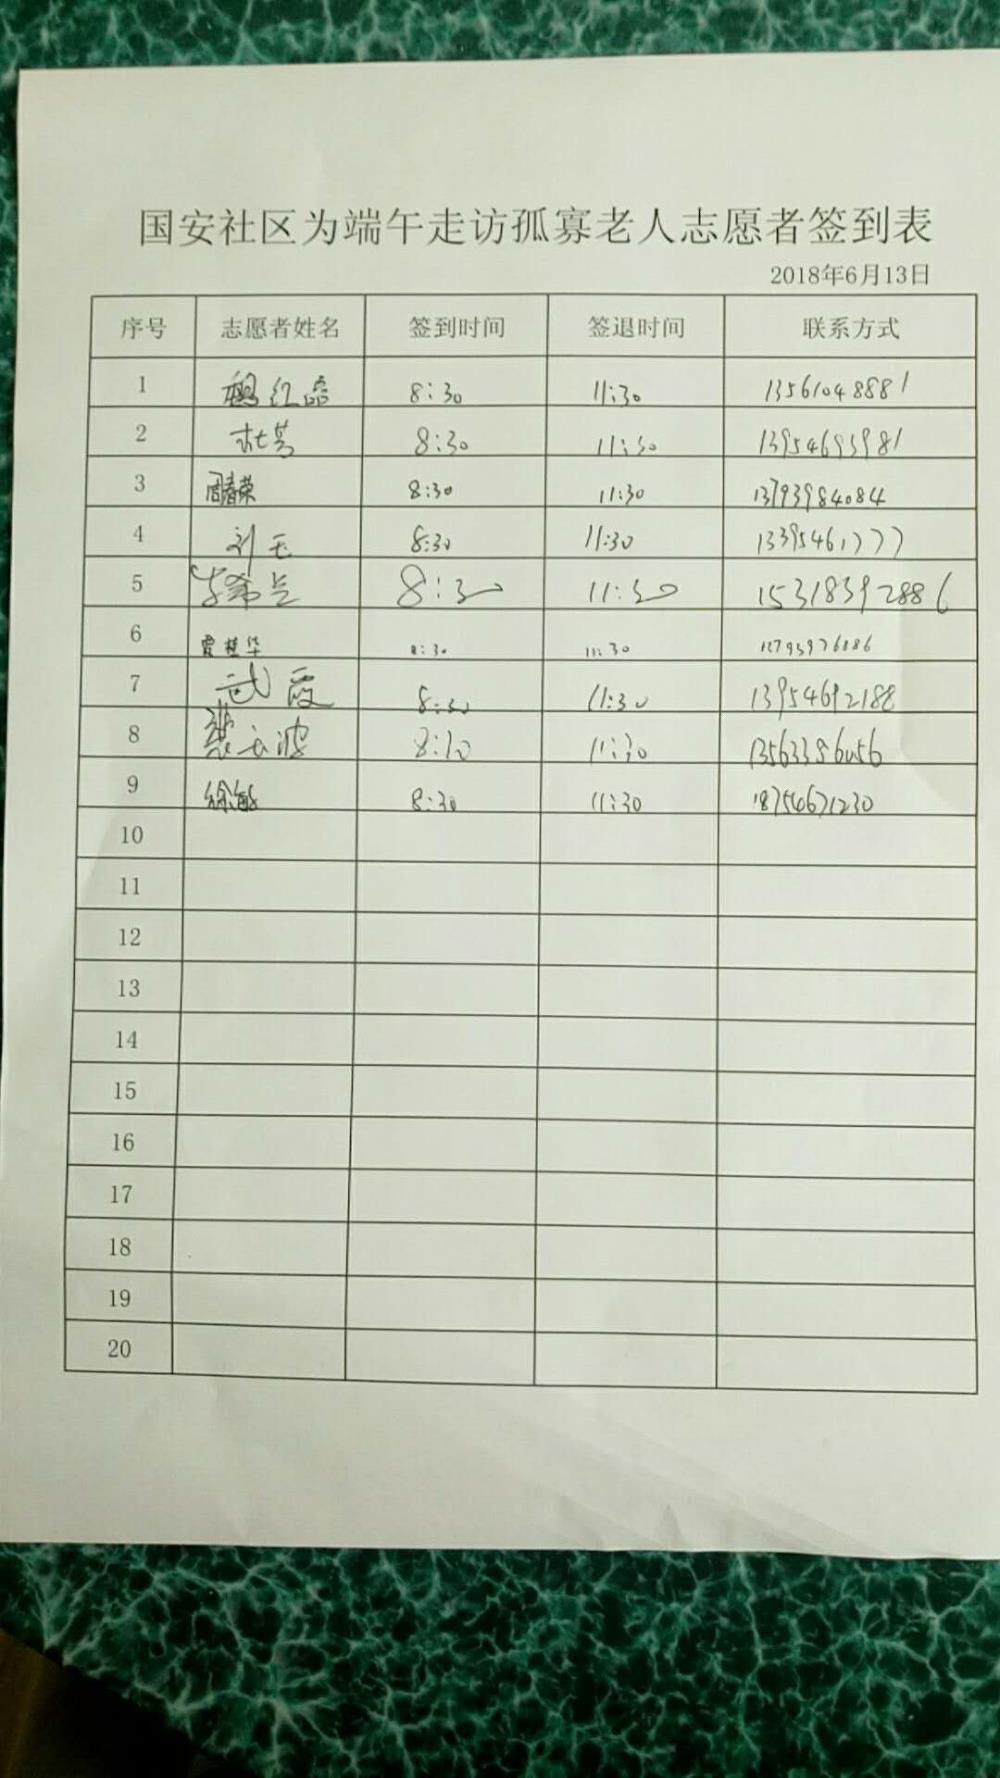 国安社区为端午走访孤寡老人志愿者签到表
2018年6月13日
序号 志愿者姓名 签到时间 签退时间 联系方式
1 8:30 11:30 13561048881
2 杜芳 8:30 11:30 13954693981
3 周春荣 8:30 11:30 13793984084
4 刘玉 8:30 11:30 13395461777
5 李希兰 8:30 11:30 15318392886
6 贾桂华 8:30 11:30
7 武霞 8:30 11:30 13954692188
8 8:30 11:30
9 徐敏 8:30 11:30 18754671230
10
11
12
13
14
15
16
17
18
19
20